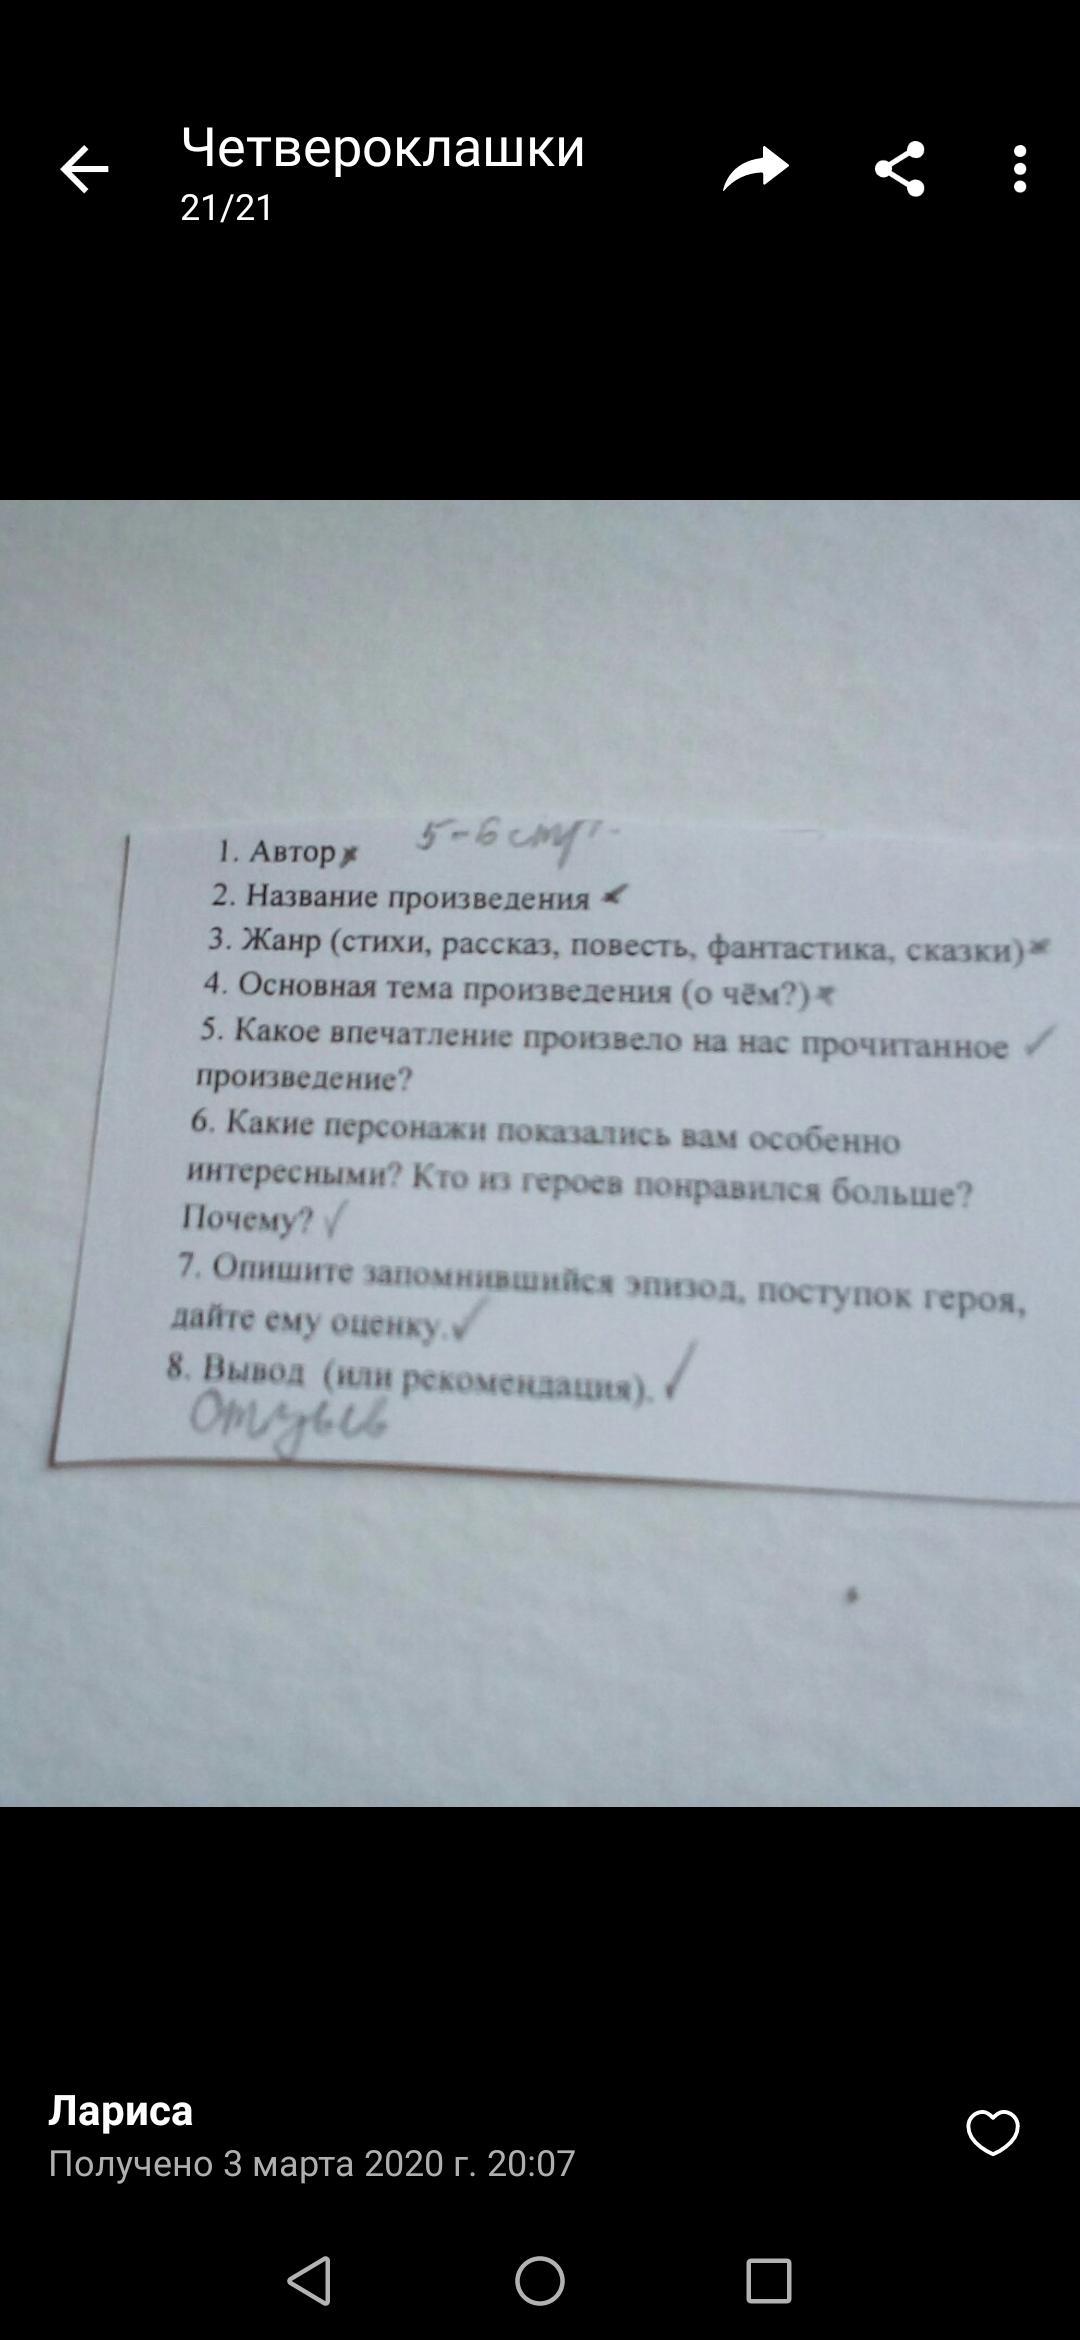 Четвероклашки
21/21
5-6 стр.
1. Автор
2. Название произведения
3. Жанр (стихи, рассказ, повесть, фантастика, сказки)
4. Основная тема произведения (о чём?)
5. Какое впечатление произвело на нас прочитанное
произведение?
6. Какие персонажи показались вам особенно
интересными? Кто из героев понравился больше?
Почему?
7. Опишите запомнившийся эпизод, поступок героя,
дайте ему оценку.
8. Вывод (или рекомендация).
Отзыв
Лариса
Получено 3 марта 2020 г. 20:07